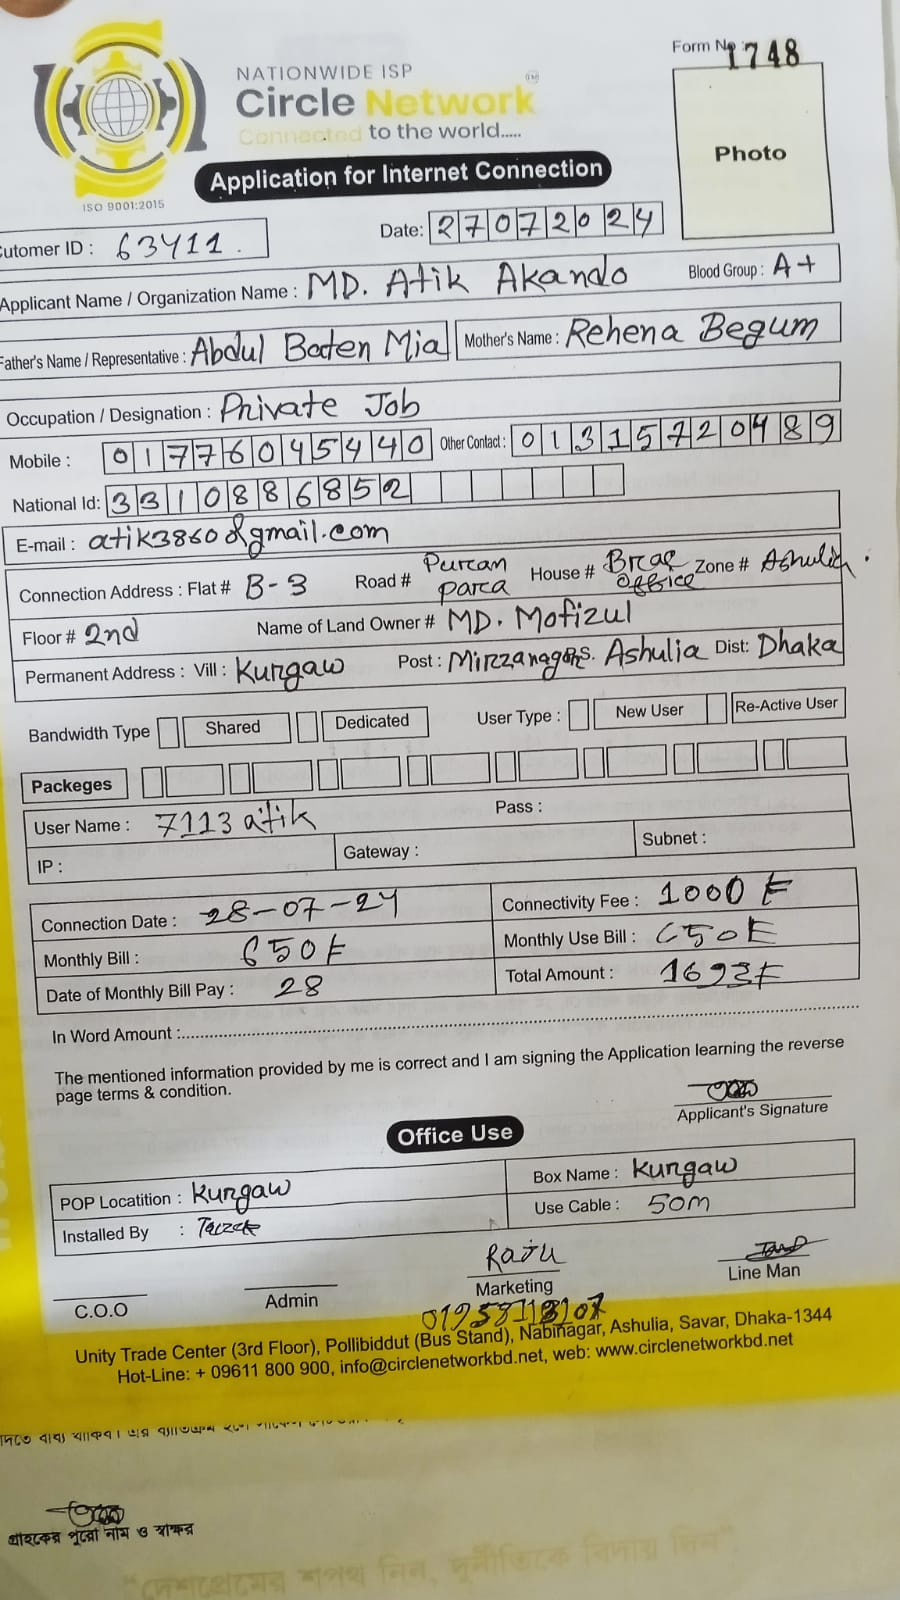 Form No : 1748
NATIONWIDE ISP
Circle Network
Connected to the world.....
ISO 9001:2015
Photo
Application for Internet Connection
Date: 27072024
Cutomer ID : 63411.
Applicant Name / Organization Name : MD. Atik Akando Blood Group : A+
Father's Name / Representative : Abdul Baten Mia Mother's Name : Rehena Begum
Occupation / Designation : Private Job
Mobile : 01776045440 Other Contact : 01315720489
National Id: 3310886852
E-mail : atik3860@gmail.com
Connection Address : Flat # B-3 Road # Puran para House # Brac office Zone # Ashulia.
Floor # 2nd Name of Land Owner # MD. Mofizul
Permanent Address : Vill : Kurgaw Post : Mirzanagar P.S. Ashulia Dist: Dhaka
Bandwidth Type Shared Dedicated User Type : New User Re-Active User
Packeges
User Name : 7113 atik Pass :
IP : Gateway : Subnet :
Connection Date : 28-07-24 Connectivity Fee : 1000 ৳
Monthly Bill : 650৳ Monthly Use Bill : 650৳
Date of Monthly Bill Pay : 28 Total Amount : 1693৳
In Word Amount :
The mentioned information provided by me is correct and I am signing the Application learning the reverse
page terms & condition.
Applicant's Signature
Office Use
POP Locatition : Kurgaw Box Name : Kurgaw
Installed By : Use Cable : 50m
Raju
C.O.O Admin Marketing Line Man
Unity Trade Center (3rd Floor), Pollibiddut (Bus Stand), Nabinagar, Ashulia, Savar, Dhaka-1344
Hot-Line: + 09611 800 900, info@circlenetworkbd.net, web: www.circlenetworkbd.net
গ্রাহকের পুরো নাম ও স্বাক্ষর
"দেশপ্রেমের শপথ নিন, দুর্নীতিকে বিদায় দিন"